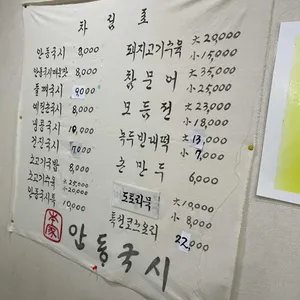 차림표
안동국시 8,000
안동국시매운맛 8,000
들깨국시 9000
예천손국시 8,000
냉콩국시 10,000
건진국시 7000
소고기국밥 8,000
소고기수육 大 25,000
小 20,000
안동국시특 10,000
돼지고기수육 大 20,000
小 15,000
참문어 大 35,000
小 25,000
모듬전 大 23,000
小 18,000
녹두빈대떡 大 13,000
小 7,000
손만두 6,000
도토리묵 大 10,000
小 8,000
특선코스요리 22,000
本家
안동국시